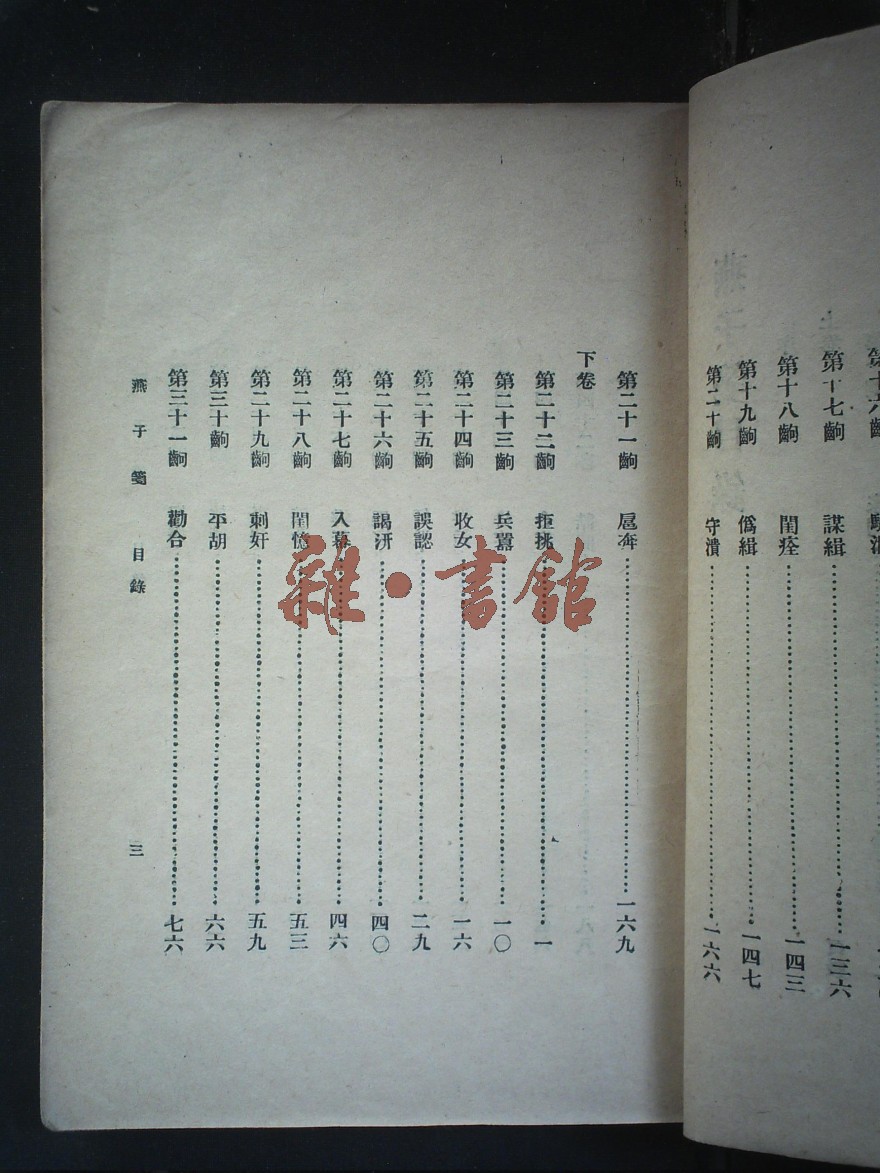 第十七齣 謀緝 一三六
第十八齣 閨痊 一四三
第十九齣 僞緝 一四七
第二十齣 守潰 一六六
第二十一齣 扈奔 一六九
下卷
第二十二齣 拒挑 一
第二十三齣 兵囂 一〇
第二十四齣 收女 一六
第二十五齣 誤認 二九
第二十六齣 謁汧 四〇
第二十七齣 入幕 四六
第二十八齣 閨憶 五三
第二十九齣 刺奸 五九
第三十齣 平胡 六六
第三十一齣 勸合 七六
燕子箋 目錄 三
雜·書館